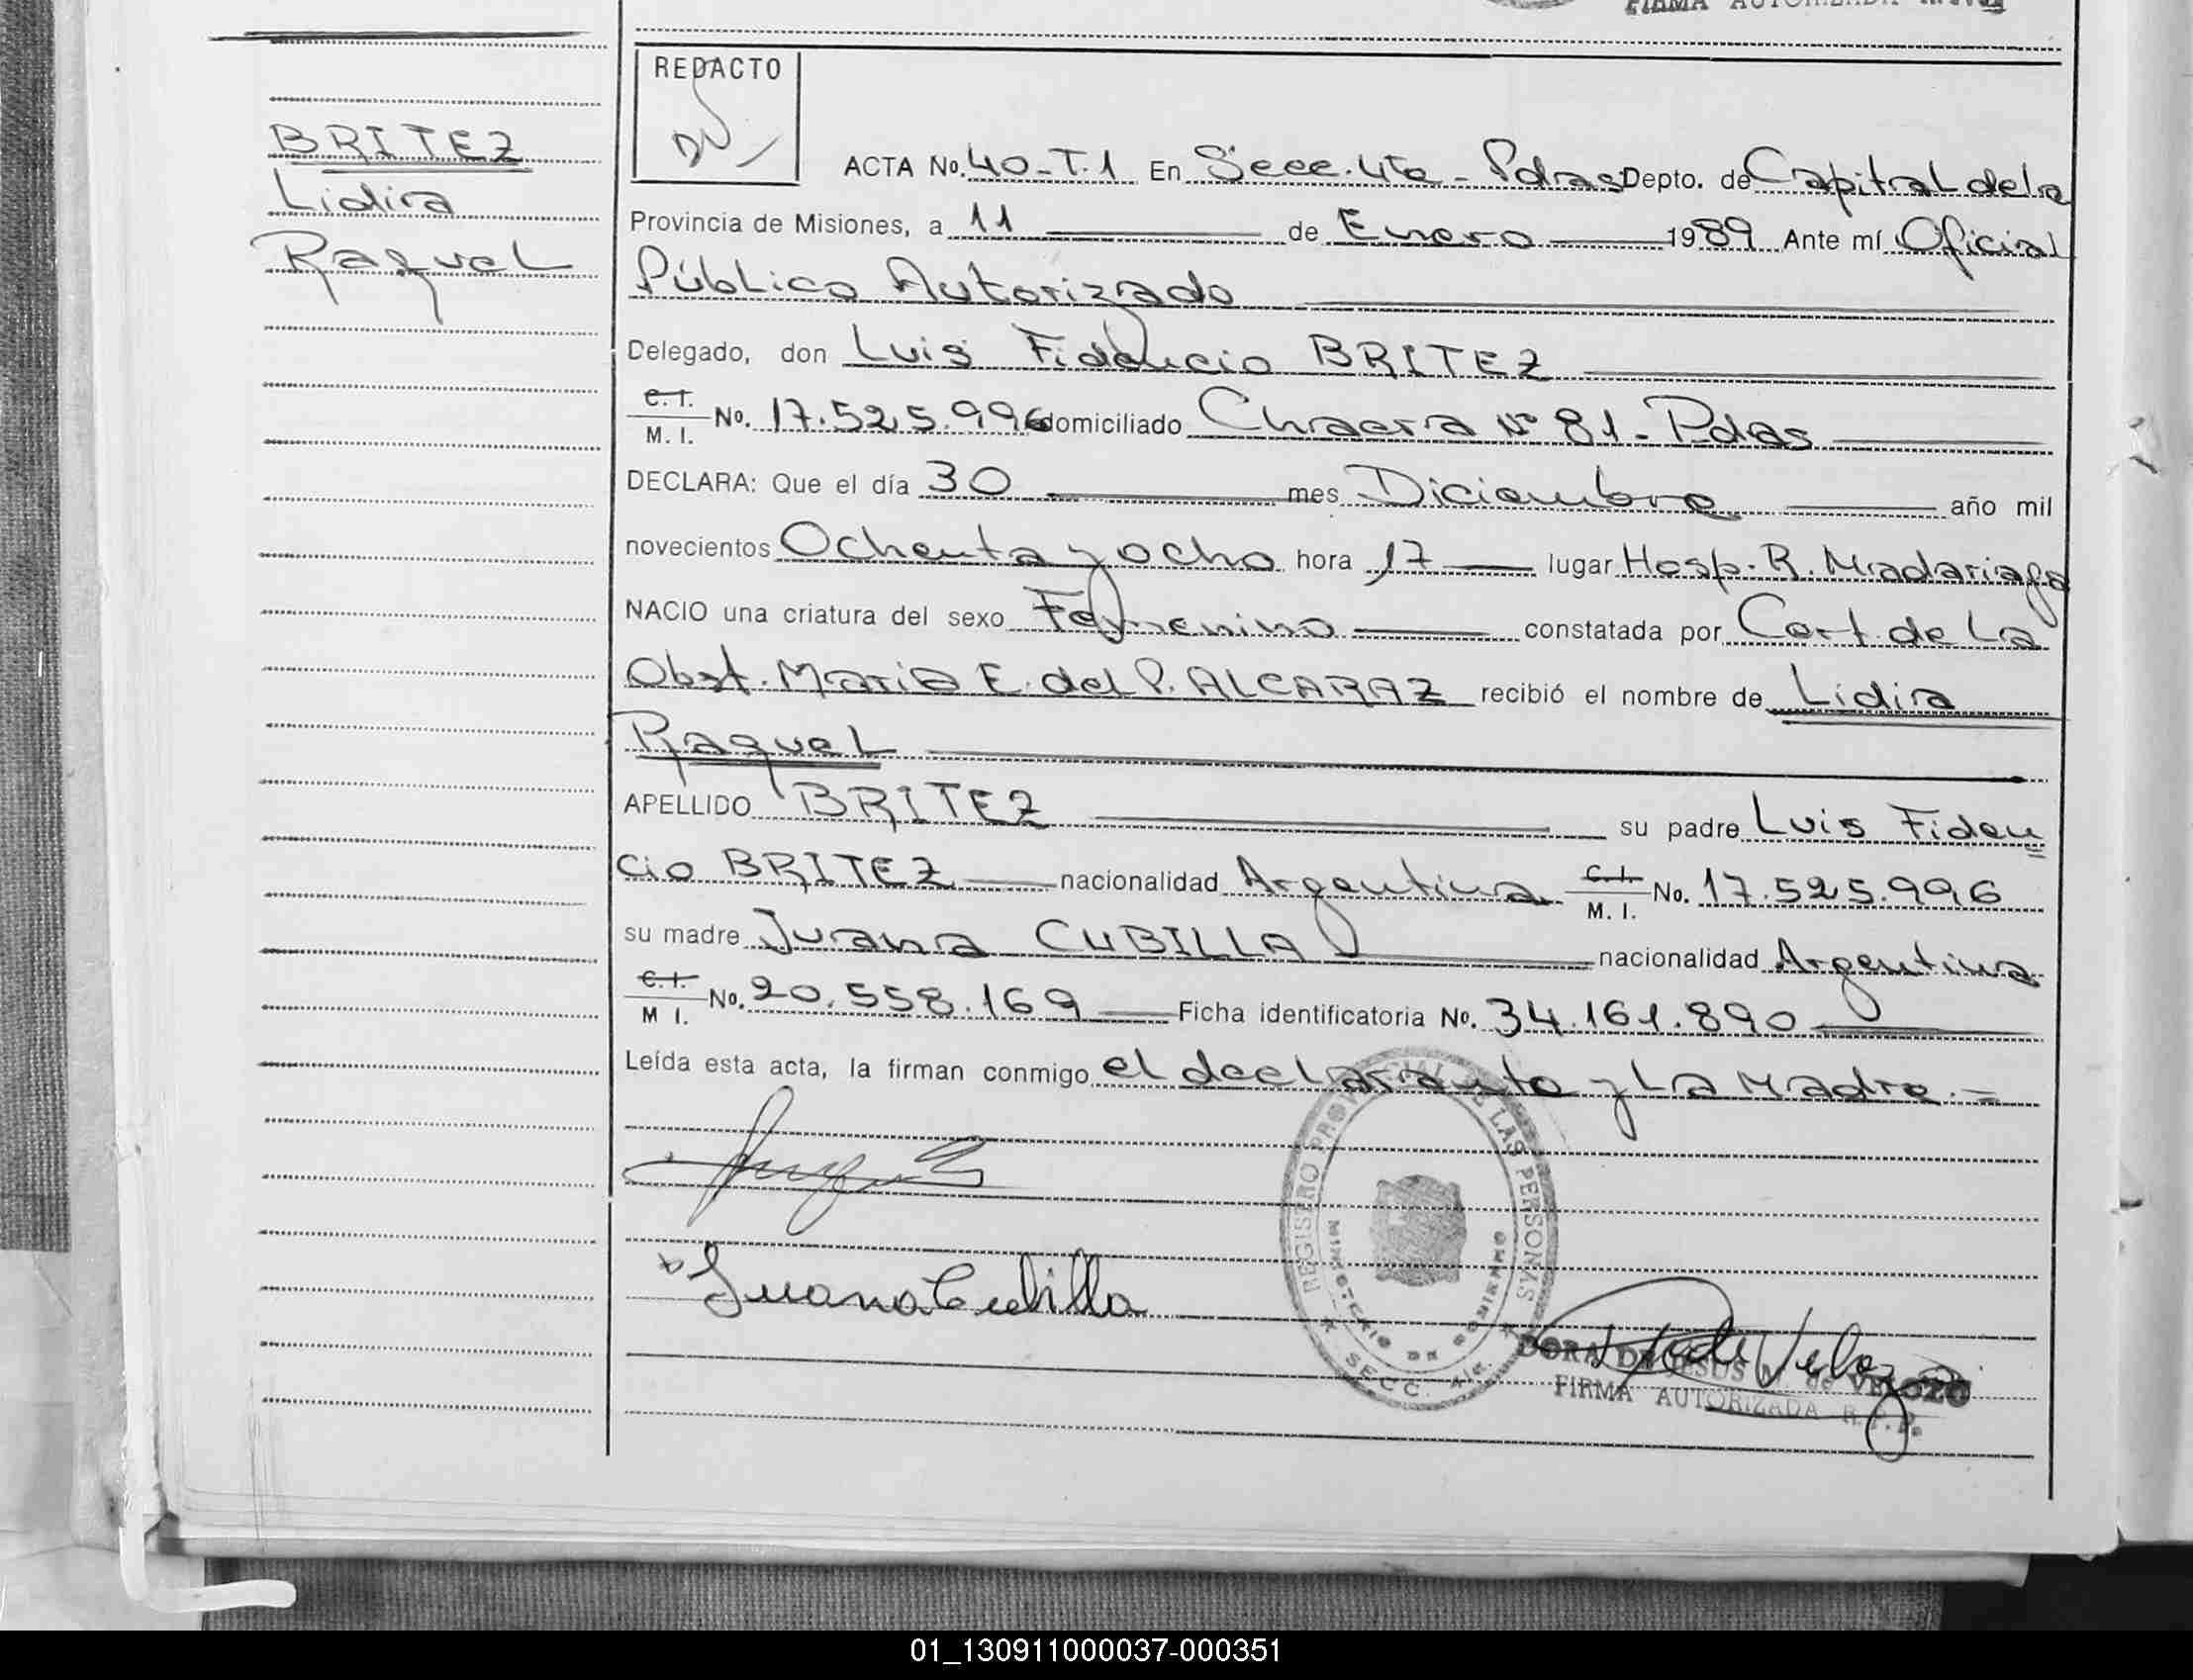 FIRMA AUTORIZADA
BRITEZ
Lidia
Raquel
REDACTO
ACTA No. 40-T.1 En Secc. 4ta - Pdas Depto. de Capital de la
Provincia de Misiones, a 11 de Enero 1989 Ante mí Oficial
Público Autorizado
Delegado, don Luis Fidencio BRITEZ
C. I.
M. I. No. 17.525.996 domiciliado Chacra Nº 81 - Pdas
DECLARA: Que el día 30 mes Diciembre año mil
novecientos Ochenta y ocho hora 17 lugar Hosp. R. Madariaga
NACIO una criatura del sexo Femenino constatada por Cert. de La
Obst. Maria E. del P. ALCARAZ recibió el nombre de Lidia
Raquel
APELLIDO BRITEZ su padre Luis Fiden
cio BRITEZ nacionalidad Argentina C. I.
M. I. No. 17.525.996
su madre Juana CUBILLA nacionalidad Argentina
C. I.
M I. No. 20.558.169 Ficha identificatoria No. 34.161.890
Leída esta acta, la firman conmigo el declarante y La Madre. =
REGISTRO PROVINCIAL DE LAS PERSONAS
MINISTERIO DE GOBIERNO
SECC. 4ta.
Juana Cubilla
DORA DE JESUS M. de VELOZO
FIRMA AUTORIZADA R.P.P.
01_130911000037-000351